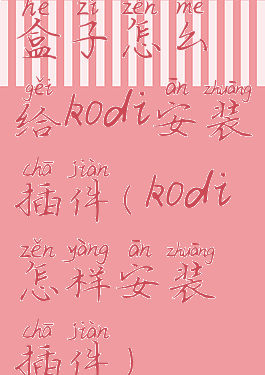 hé zi zěn me
盒子怎么
gěi ān zhuāng
给kodi安装
chā jiàn
插件(kodi
zěn yàng ān zhuāng
怎样安装
chā jiàn
插件)